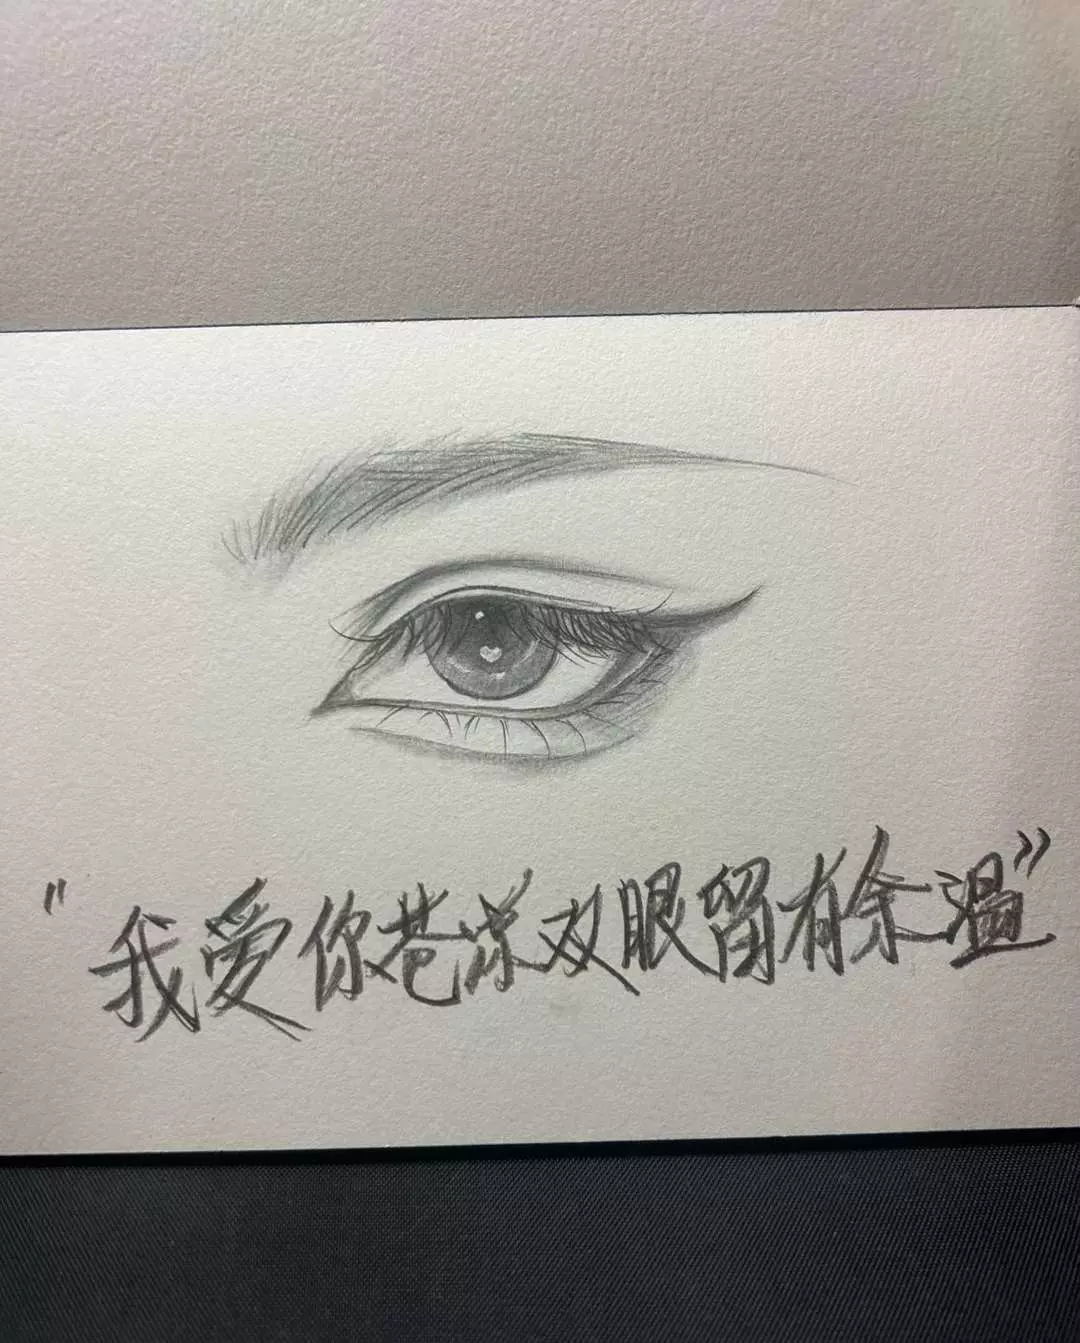 "我爱你苍凉双眼留有余温"